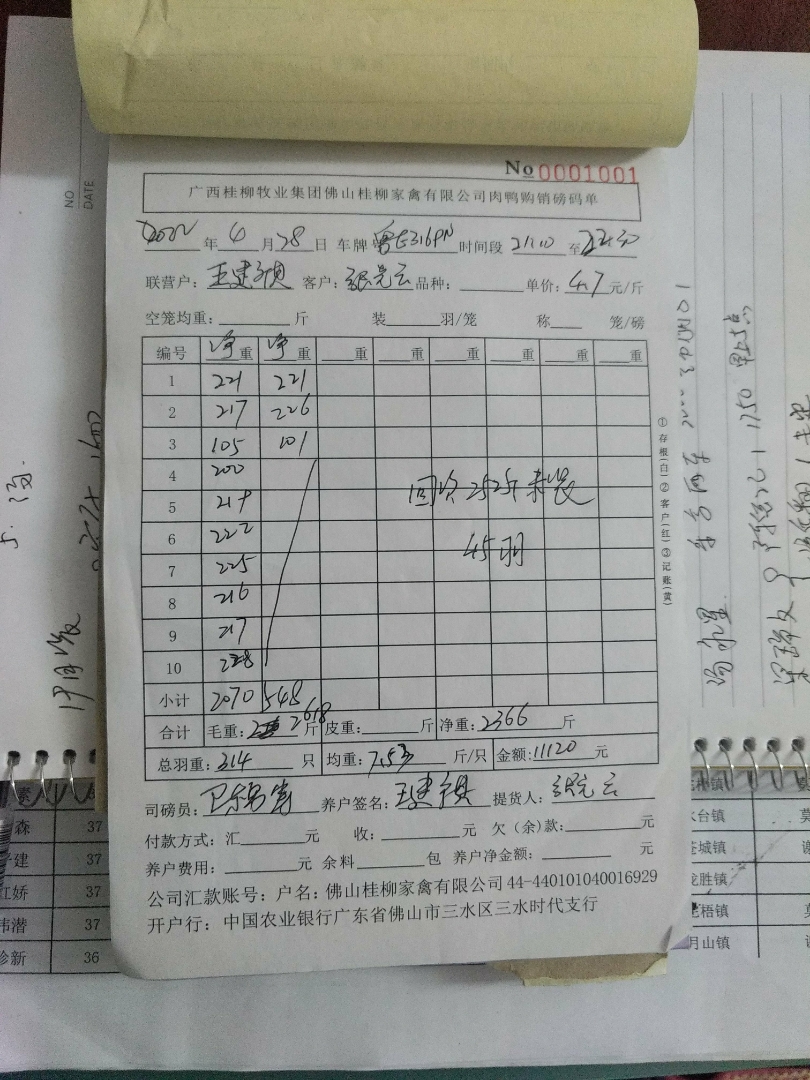 No 0001001
广西桂柳牧业集团佛山桂柳家禽有限公司肉鸭购销磅码单
2022年4月28日 车牌 粤E316PN 时间段 21:10 至 22:30
联营户: 王建 客户: 张亮云 品种: 单价: 4.7 元/斤
空笼均重: 斤 装 羽/笼 称 笼/磅
编号 净重 净重 重 重 重 重 重 重
1 221 221
2 217 226
3 105 101
4 200
5 219
6 222
7 225
8 216
9 217
10 228
回资252斤 未装
45羽
小计 2070 548
合计 毛重: 2618 斤 皮重: 斤 净重: 2366 斤
总羽重: 314 只 均重: 7.53 斤/只 金额: 11120 元
司磅员: 养户签名: 王建 提货人: 张亮云
付款方式: 汇 元 收: 元 欠(余)款: 元
养户费用: 元 余料 包 养户净金额: 元
公司汇款账号: 户名: 佛山桂柳家禽有限公司 44-440101040016929
开户行: 中国农业银行广东省佛山市三水区三水时代支行
①存根(白) ②客户(红) ③记账(黄)
NO
DATE
森 37
建 37
江娇 37
伟潜 37
珍新 36
水台镇
苍城镇
龙胜镇
苍梧镇
月山镇
1750